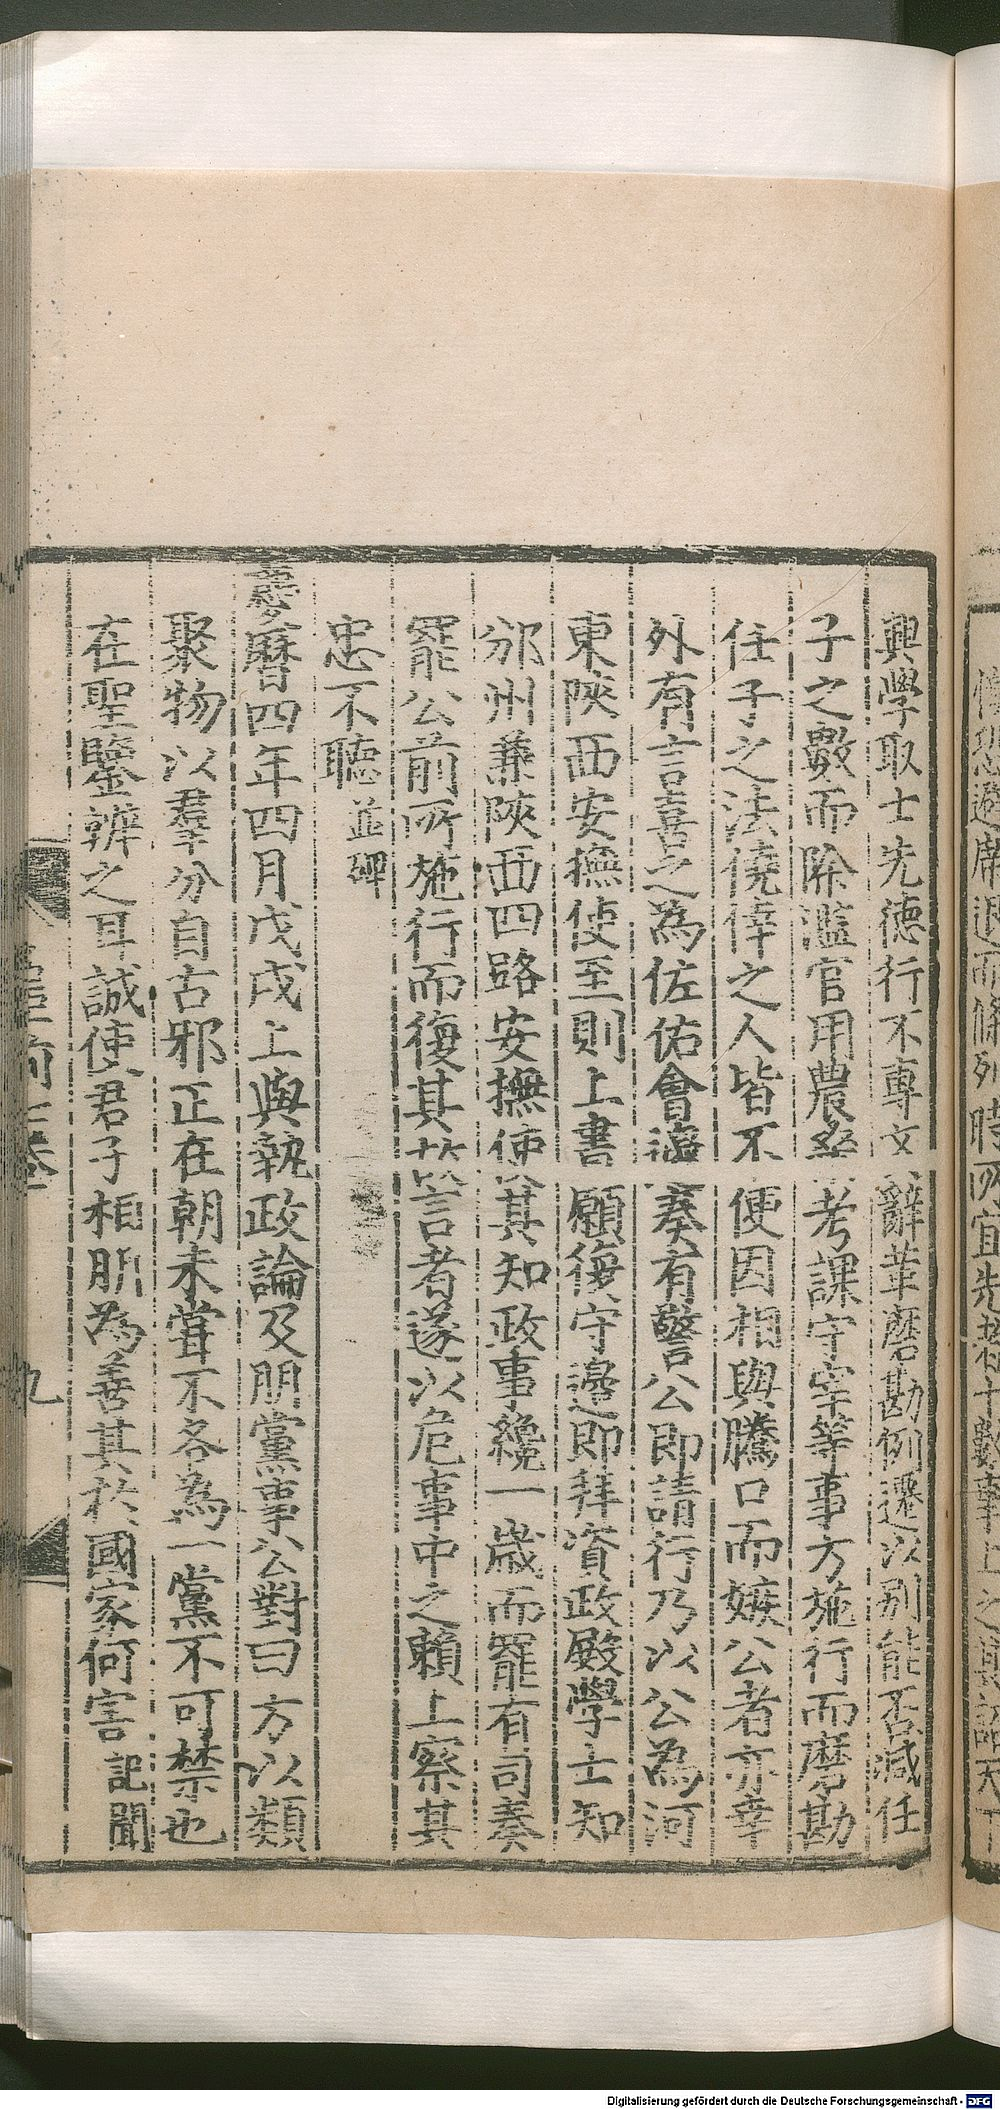 興學取士先德行不專文辭革磨勘例遷以别能否減任
子之數而除濫官用農桑考課守宰等事方施行而磨勘
任子之法僥倖之人皆不便因相與騰口而嫉公者亦幸
外有言喜之為佐佑會邊奏有警公即請行乃以公為河
東陝西安撫使至則上書願復守邊即拜資政殿學士知
邠州兼陝西四路安撫使其知政事纔一歲而罷有司奏
罷公前所施行而復其故言者遂以危事中之賴上察其
忠不聽 並碑
慶曆四年四月戊戌上與執政論及朋黨事公對曰方以類
聚物以羣分自古邪正在朝未嘗不各為一黨不可禁也
在聖鑒辨之耳誠使君子相朋為善其於國家何害 記聞
九
Digitalisierung gefördert durch die Deutsche Forschungsgemeinschaft - DFG